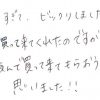 すぎて、ビックリしました
買って来てくれたのですが
んで買って来てもらおう
思いました!!